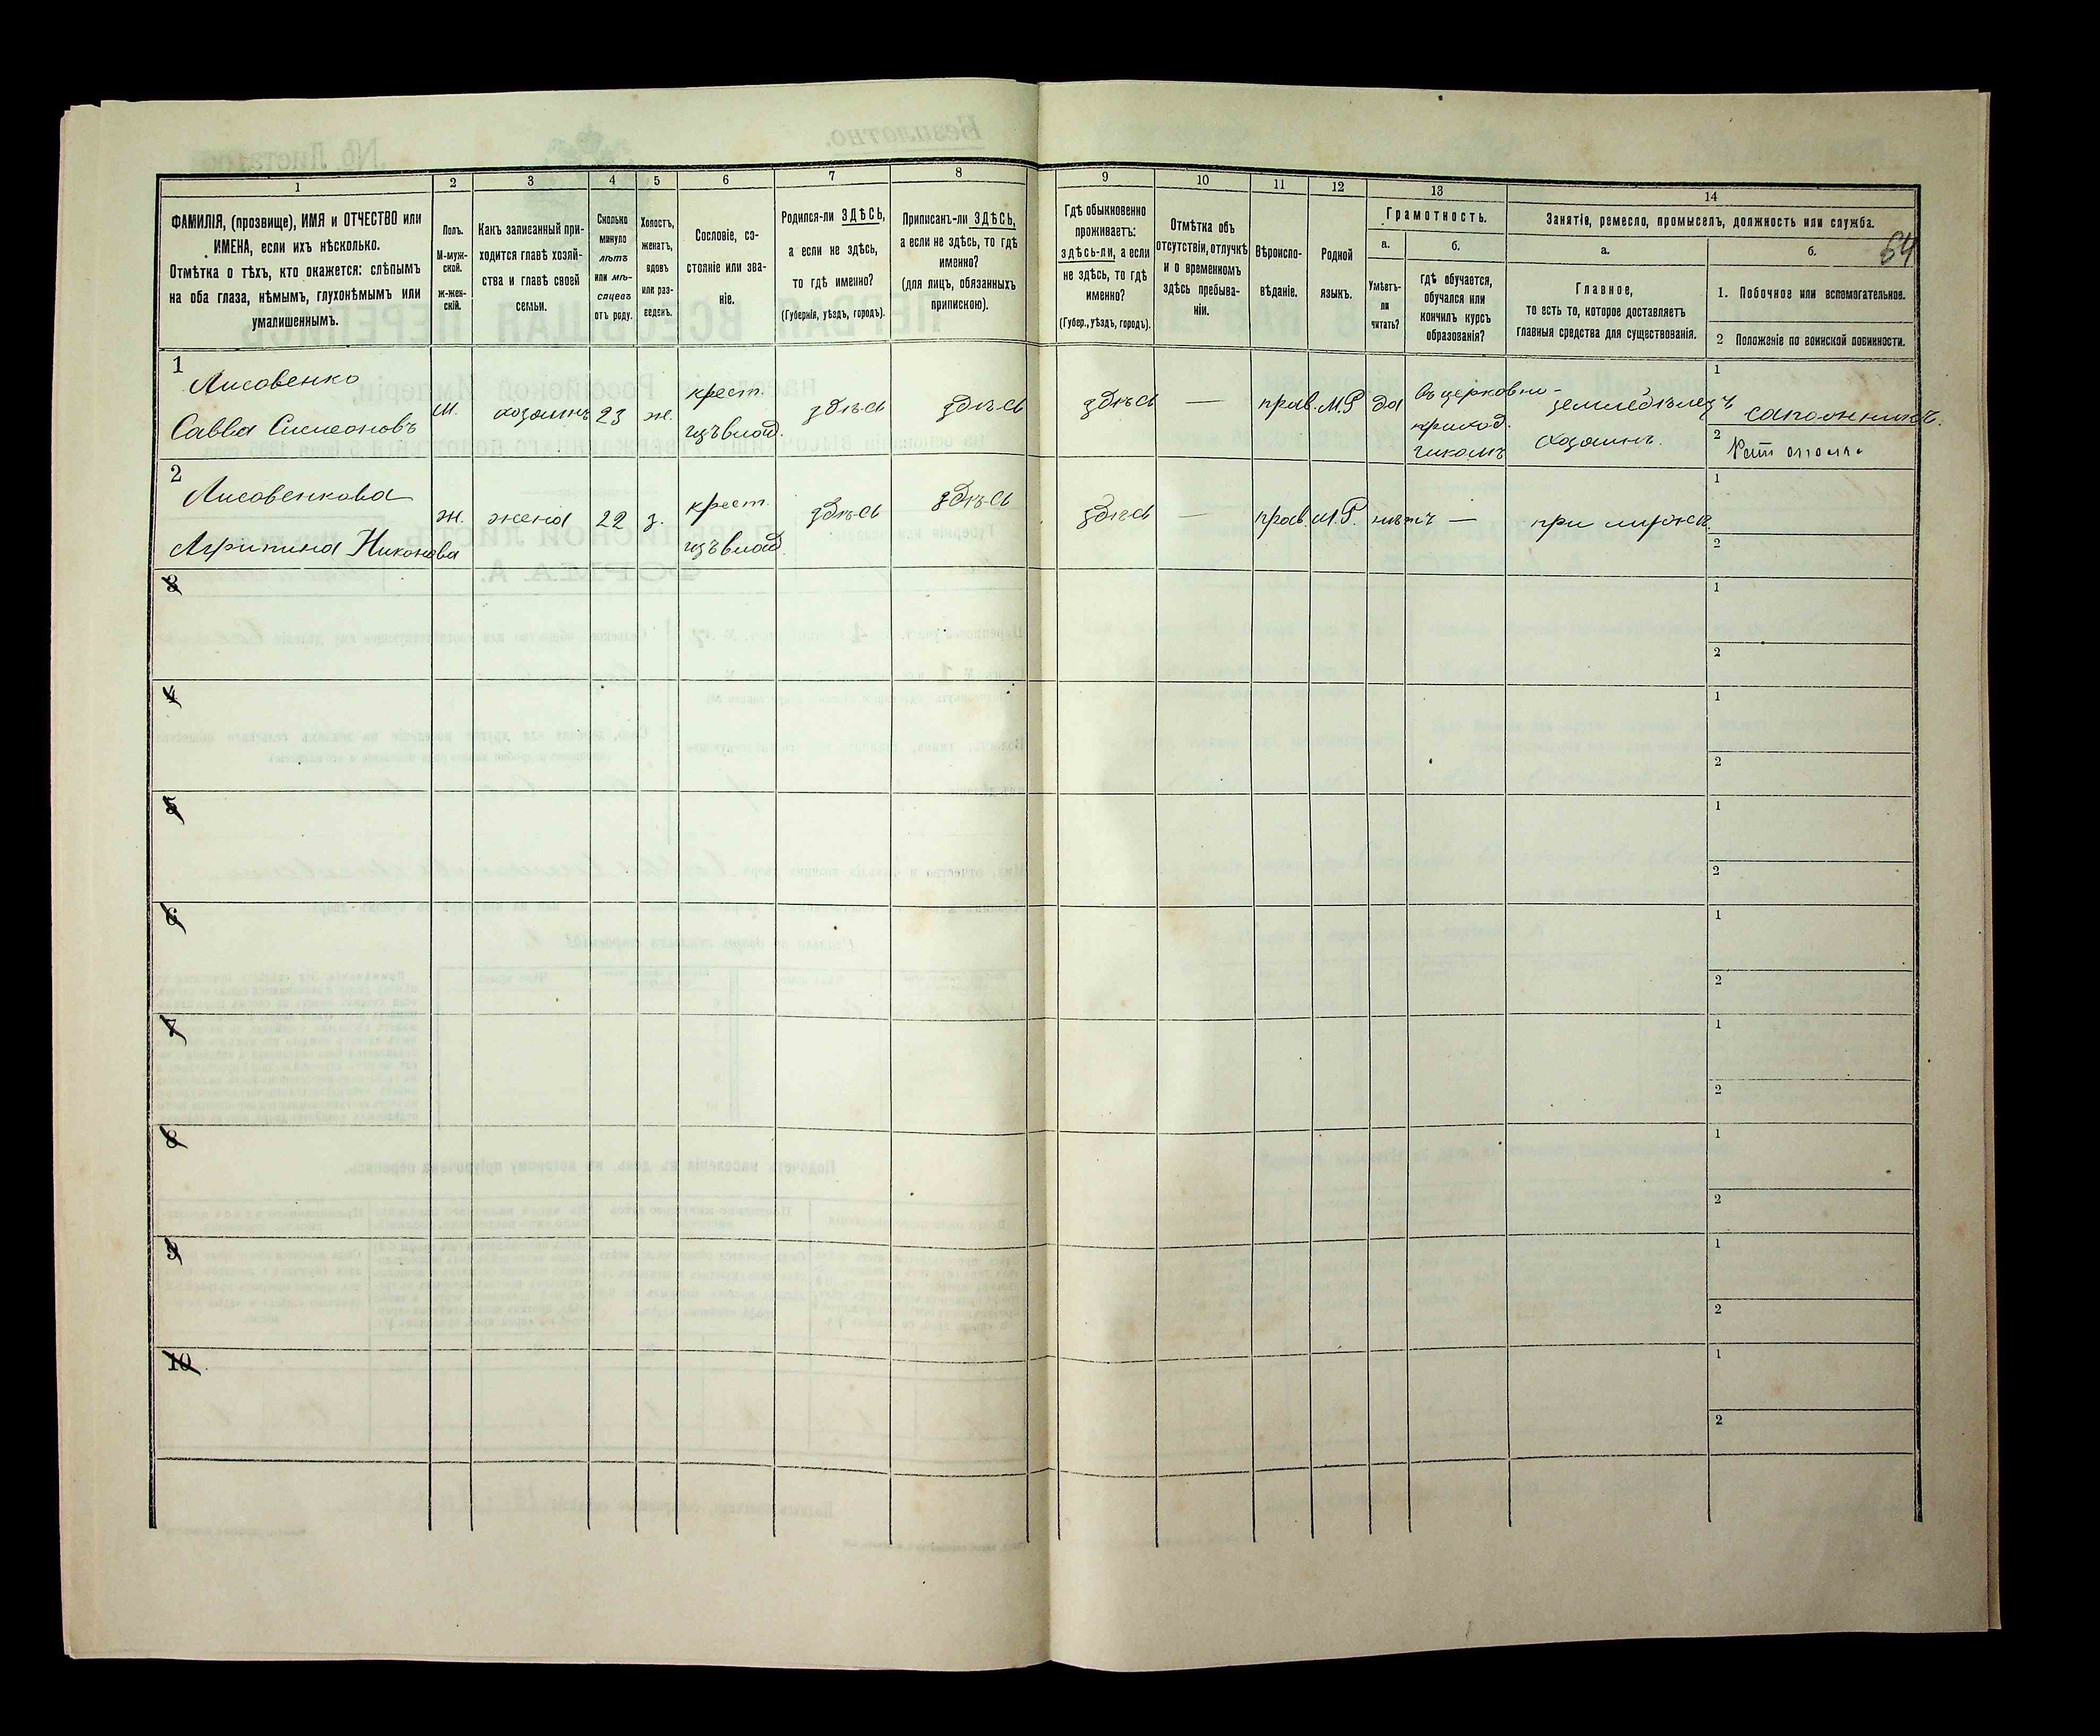 64
1
2
3
4
5
6
7
8
9
10
11
12
13
14
ФАМИЛІЯ, (прозвище), ИМЯ и ОТЧЕСТВО или
ИМЕНА, если ихъ нѣсколько.
Отмѣтка о тѣхъ, кто окажется: слѣпымъ
на оба глаза, нѣмымъ, глухонѣмымъ или
умалишеннымъ.
Полъ.
М-муж-
ской.
Ж-жен-
скій.
Какъ записанный при-
ходится главѣ хозяй-
ства и главѣ своей
семьи.
Сколько
минуло
лѣтъ
или мѣ-
сяцевъ
отъ роду.
Холостъ,
женатъ,
вдовъ
или раз-
веденъ.
Сословіе, со-
стояніе или зва-
ніе.
Родился-ли ЗДѢСЬ,
а если не здѣсь,
то гдѣ именно?
(Губернія, уѣздъ, городъ).
Приписанъ-ли ЗДѢСЬ,
а если не здѣсь, то гдѣ
именно?
(для лицъ, обязанныхъ
припискою).
Гдѣ обыкновенно
проживаетъ:
здѣсь-ли, а если
не здѣсь, то гдѣ
именно?
(Губер., уѣздъ, городъ).
Отмѣтка объ
отсутствіи, отлучкѣ
и о временномъ
здѣсь пребыва-
ніи.
Вѣроиспо-
вѣданіе.
Родной
языкъ.
Грамотность.
а.
Умѣетъ-
ли
читать?
б.
Гдѣ обучается,
обучался или
кончилъ курсъ
образованія?
Занятіе, ремесло, промыселъ, должность или служба.
а.
Главное,
то есть то, которое доставляетъ
главныя средства для существованія.
б.
1. Побочное или вспомогательное.
2 Положеніе по воинской повинности.
1
Лисовенко
Савва Симеоновъ
м.
хозяинъ
23
ж.
крест.
изъ влад.
здѣсь
здѣсь
здѣсь
—
прав.
М.Р
да
въ церковно-
приход.
земледѣлецъ
хозяинъ.
1
сапожникъ.
2
2
Лисовенкова
Агрипина Никонова
ж.
жена
22
з.
крест.
изъ влад.
здѣсь
здѣсь
здѣсь
—
прав.
М.Р.
нѣтъ
—
при мужѣ.
1
2
3
1
2
4
1
2
5
1
2
6
1
2
7
1
2
8
1
2
9
1
2
10
1
2